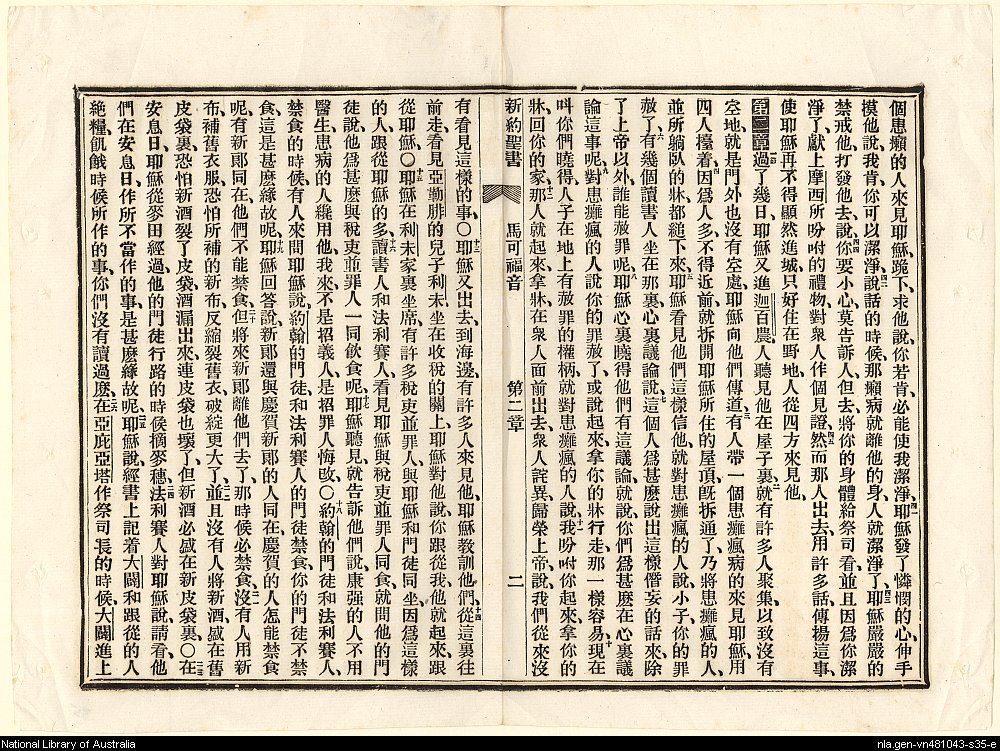 個患癩的人來見耶穌、跪下求他說、你若肯、必能使我潔淨、四一耶穌發了憐憫的心、伸手
摸他說、我肯你可以潔淨、四二說話的時候、那癩病就離他的身、人就潔淨了、四三耶穌嚴嚴的
禁戒他、打發他去、四四說、你要小心、莫吿訴人、但去將你的身體給祭司看、並且因爲你潔
淨了、獻上摩西所吩咐的禮物、對衆人作個見證、四五然而那人出去、用許多話傳揚這事、
使耶穌再不得顯然進城、只好住在野地、人從四方來見他、
第二章過了幾日、耶穌又進迦百農、人聽見他在屋子裏、二就有許多人聚集、以致沒有
空地、就是門外也沒有空處、耶穌向他們傳道、三有人帶一個患癱瘋病的來見耶穌、用
四人擡着、四因爲人多、不得近前、就拆開耶穌所住的屋頂、旣拆通了、乃將患癱瘋的人、
並所躺臥的牀、都縋下來、五耶穌看見他們這樣信他、就對患癱瘋的人說、小子、你的罪
赦了、六有幾個讀書人坐在那裏、心裏議論說、七這個人爲甚麽說出這樣僭妄的話來、除
了上帝以外、誰能赦罪呢、八耶穌心裏曉得他們有這議論、就說、你們爲甚麽在心裏議
論這事呢、九對患癱瘋的人說、你的罪赦了、或說起來拿你的牀行走、那一樣容易、十現在
呌你們曉得人子在地上有赦罪的權柄、就對患癱瘋的人說、十一我吩咐你起來、拿你的
牀、回你的家、十二那人就起來、拿牀在衆人面前出去、衆人詫異、歸榮上帝、說、我們從來沒
新約聖書 馬可福音 第二章 二
有看見這樣的事、○十三耶穌又出去、到海邊、有許多人來見他、耶穌敎訓他們、十四從這裏往
前走、看見亞勒腓的兒子利未、坐在收稅的關上、耶穌對他說、你跟從我、他就起來跟
從耶穌、○十五耶穌在利未家裏坐席、有許多稅吏並罪人、與耶穌和門徒同坐、因爲這樣
的人、跟從耶穌的多、十六讀書人和法利賽人、看見耶穌與稅吏並罪人同食、就問他的門
徒說、他爲甚麽與稅吏並罪人一同飮食呢、十七耶穌聽見、就吿訴他們說、康强的人不用
醫生、患病的人纔用他、我來不是招義人、是招罪人悔改、○十八約翰的門徒、和法利賽人、
禁食的時候、有人來問耶穌說、約翰的門徒、和法利賽人的門徒禁食、你的門徒不禁
食、這是甚麽緣故呢、十九耶穌回答說、新郞還與慶賀新郞的人同在、慶賀的人怎能禁食
呢、有新郞同在、他們不能禁食、二十但將來新郞離他們去了、那時候必禁食、二一沒有人用新
布補舊衣服、恐怕所補的新布反縮裂舊衣、破綻更大了、二二並且沒有人將新酒盛在舊
皮袋裏、恐怕新酒裂了皮袋、酒漏出來、連皮袋也壞了、但新酒必盛在新皮袋裏、○二三在
安息日、耶穌從麥田經過、他的門徒行路的時候摘麥穗、二四法利賽人對耶穌說、請看、他
們在安息日、作所不當作的事、是甚麽緣故呢、二五耶穌說、經書上記着大闢和跟從的人
絶糧、飢餓時候所作的事、你們沒有讀過麽、二六在亞庇亞塔作祭司長的時候、大闢進上
National Library of Australia
nla.gen-vn481043-s35-e